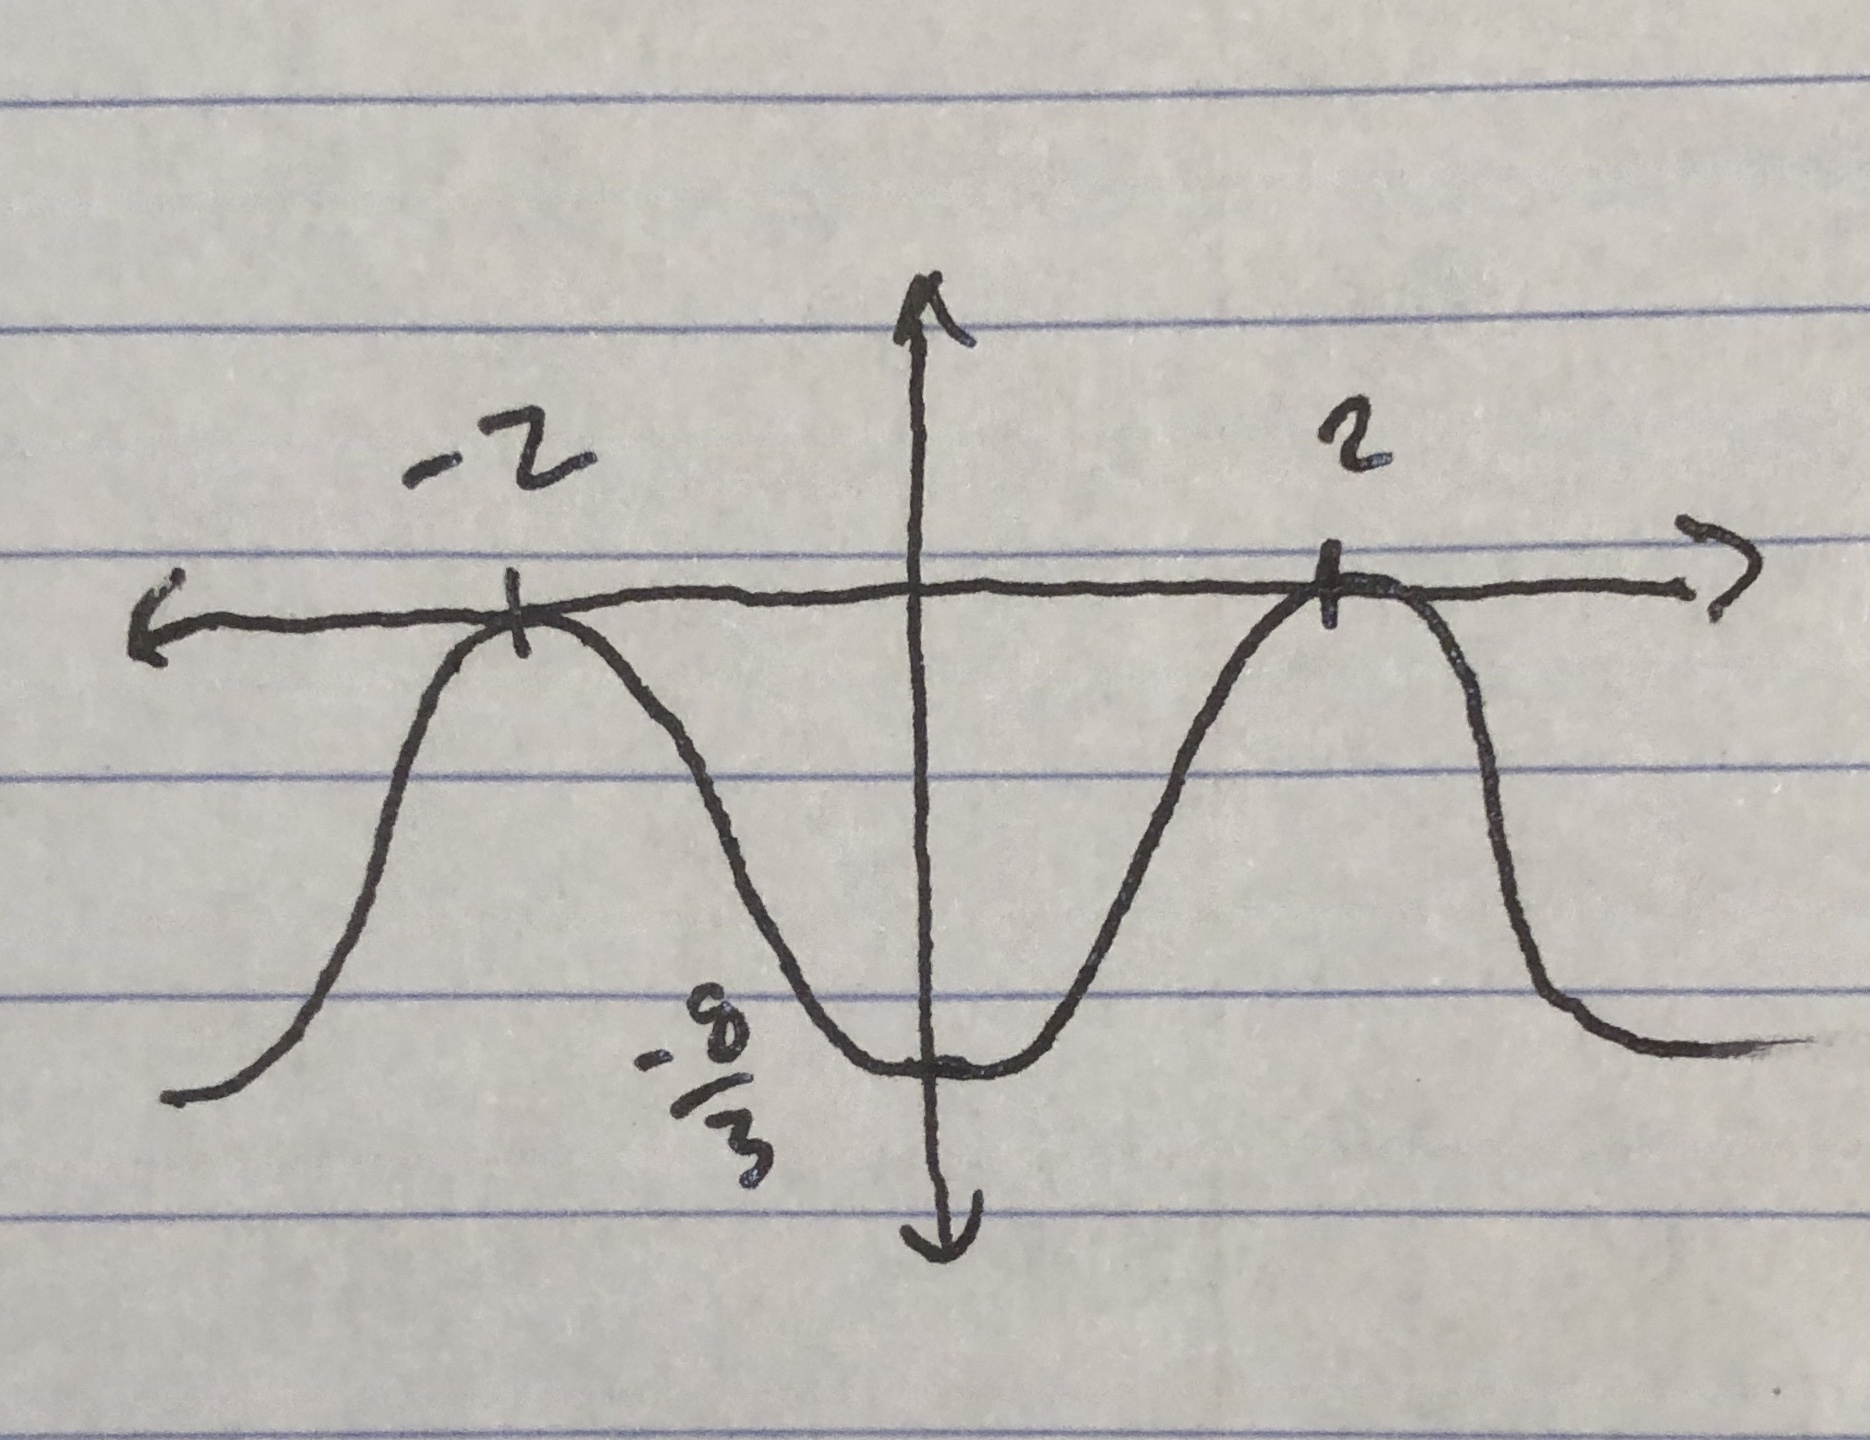 -2 2
-8/3